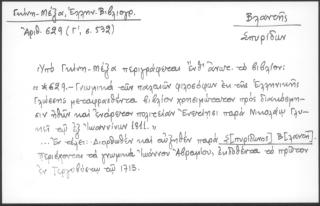 Γκίνη-Μέξα, Ἑλλην. Βιβλιογρ.
Ἀριθ. 629 (Γ', σ. 532)
Βλαντῆς
Σπυρίδων
Ὑπὸ Γκίνη-Μέξα περιγράφεται ἐνθ' ἀνωτ. τὸ βιβλίον:
"*629.- Γνωμικὰ τῶν παλαιῶν φιλοσόφων ἐκ τῆς Ἑλληνικῆς
Γλώσσης μεταφρασθέντα βιβλίον χρησιμώτατον πρὸς διακόσμη-
σιν ἠθῶν καὶ ἐνάρετον πολιτείαν Ἐνετίησι παρὰ Νικολάῳ Γλυ-
κεῖ τῷ ἐξ Ἰωαννίνων
... Ἐν τέλει: Διορθωθὲν καὶ αὐξηθὲν παρὰ Σ[πυρίδωνος] Β[λαντῆ].
Περιέχονται τὰ γνωμικὰ Ἰωάννου Ἀβραμίου, ἐκδοθέντα τὸ πρῶτον
ἐν Τεργοβύστῳ τῷ 1713.